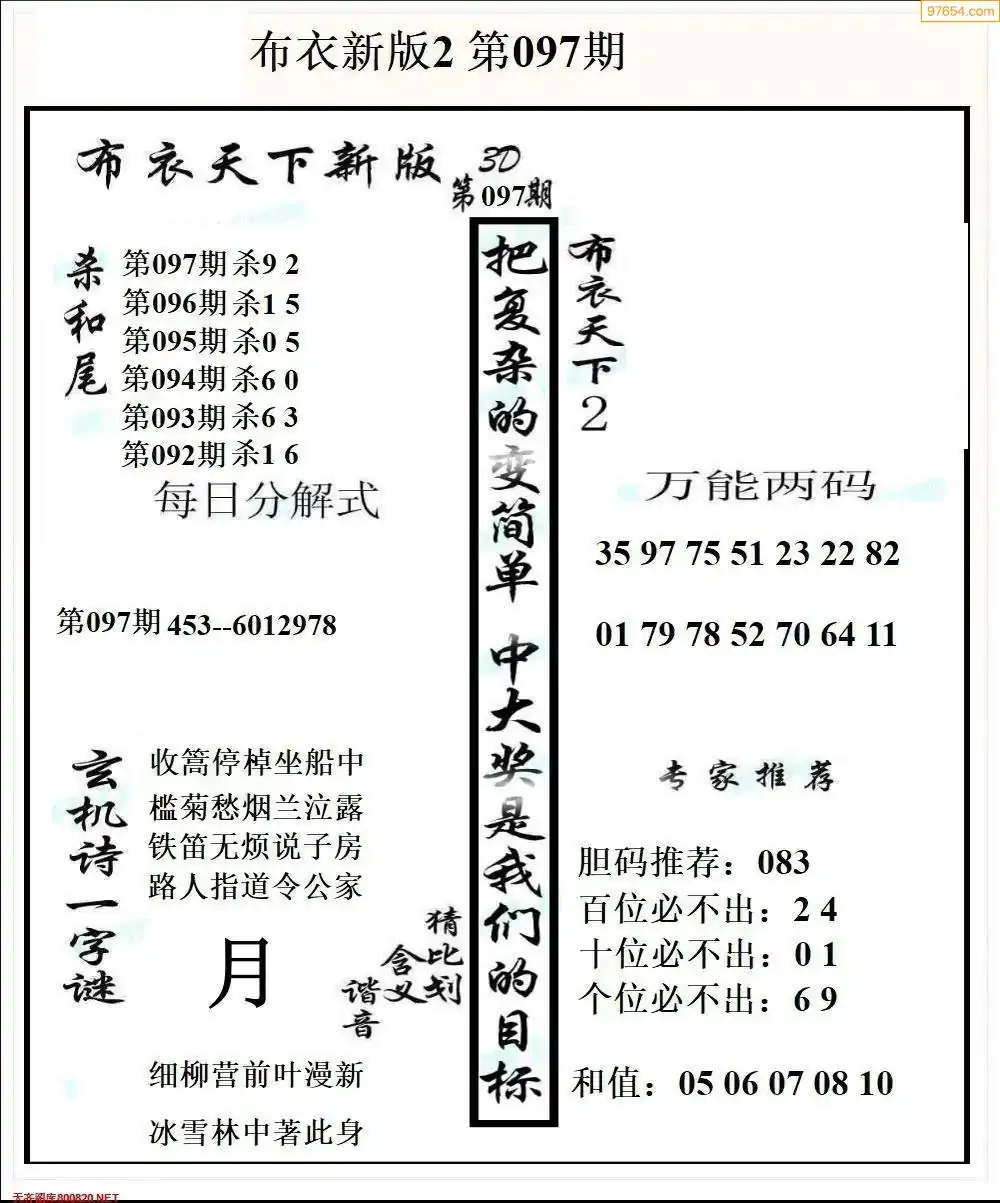 97654.com
布衣新版2 第097期
布衣天下新版 3D
第097期
杀和尾
第097期 杀9 2
第096期 杀1 5
第095期 杀0 5
第094期 杀6 0
第093期 杀6 3
第092期 杀1 6
每日分解式
第097期 453--6012978
玄机诗一字谜
收篙停棹坐船中
槛菊愁烟兰泣露
铁笛无烦说子房
路人指道令公家
月
猜比划
含义
谐音
细柳营前叶漫新
冰雪林中著此身
把复杂的变简单 中大奖是我们的目标
布衣天下2
万能两码
35 97 75 51 23 22 82
01 79 78 52 70 64 11
专家推荐
胆码推荐：083
百位必不出：2 4
十位必不出：0 1
个位必不出：6 9
和值：05 06 07 08 10
天齐图库800820.NET